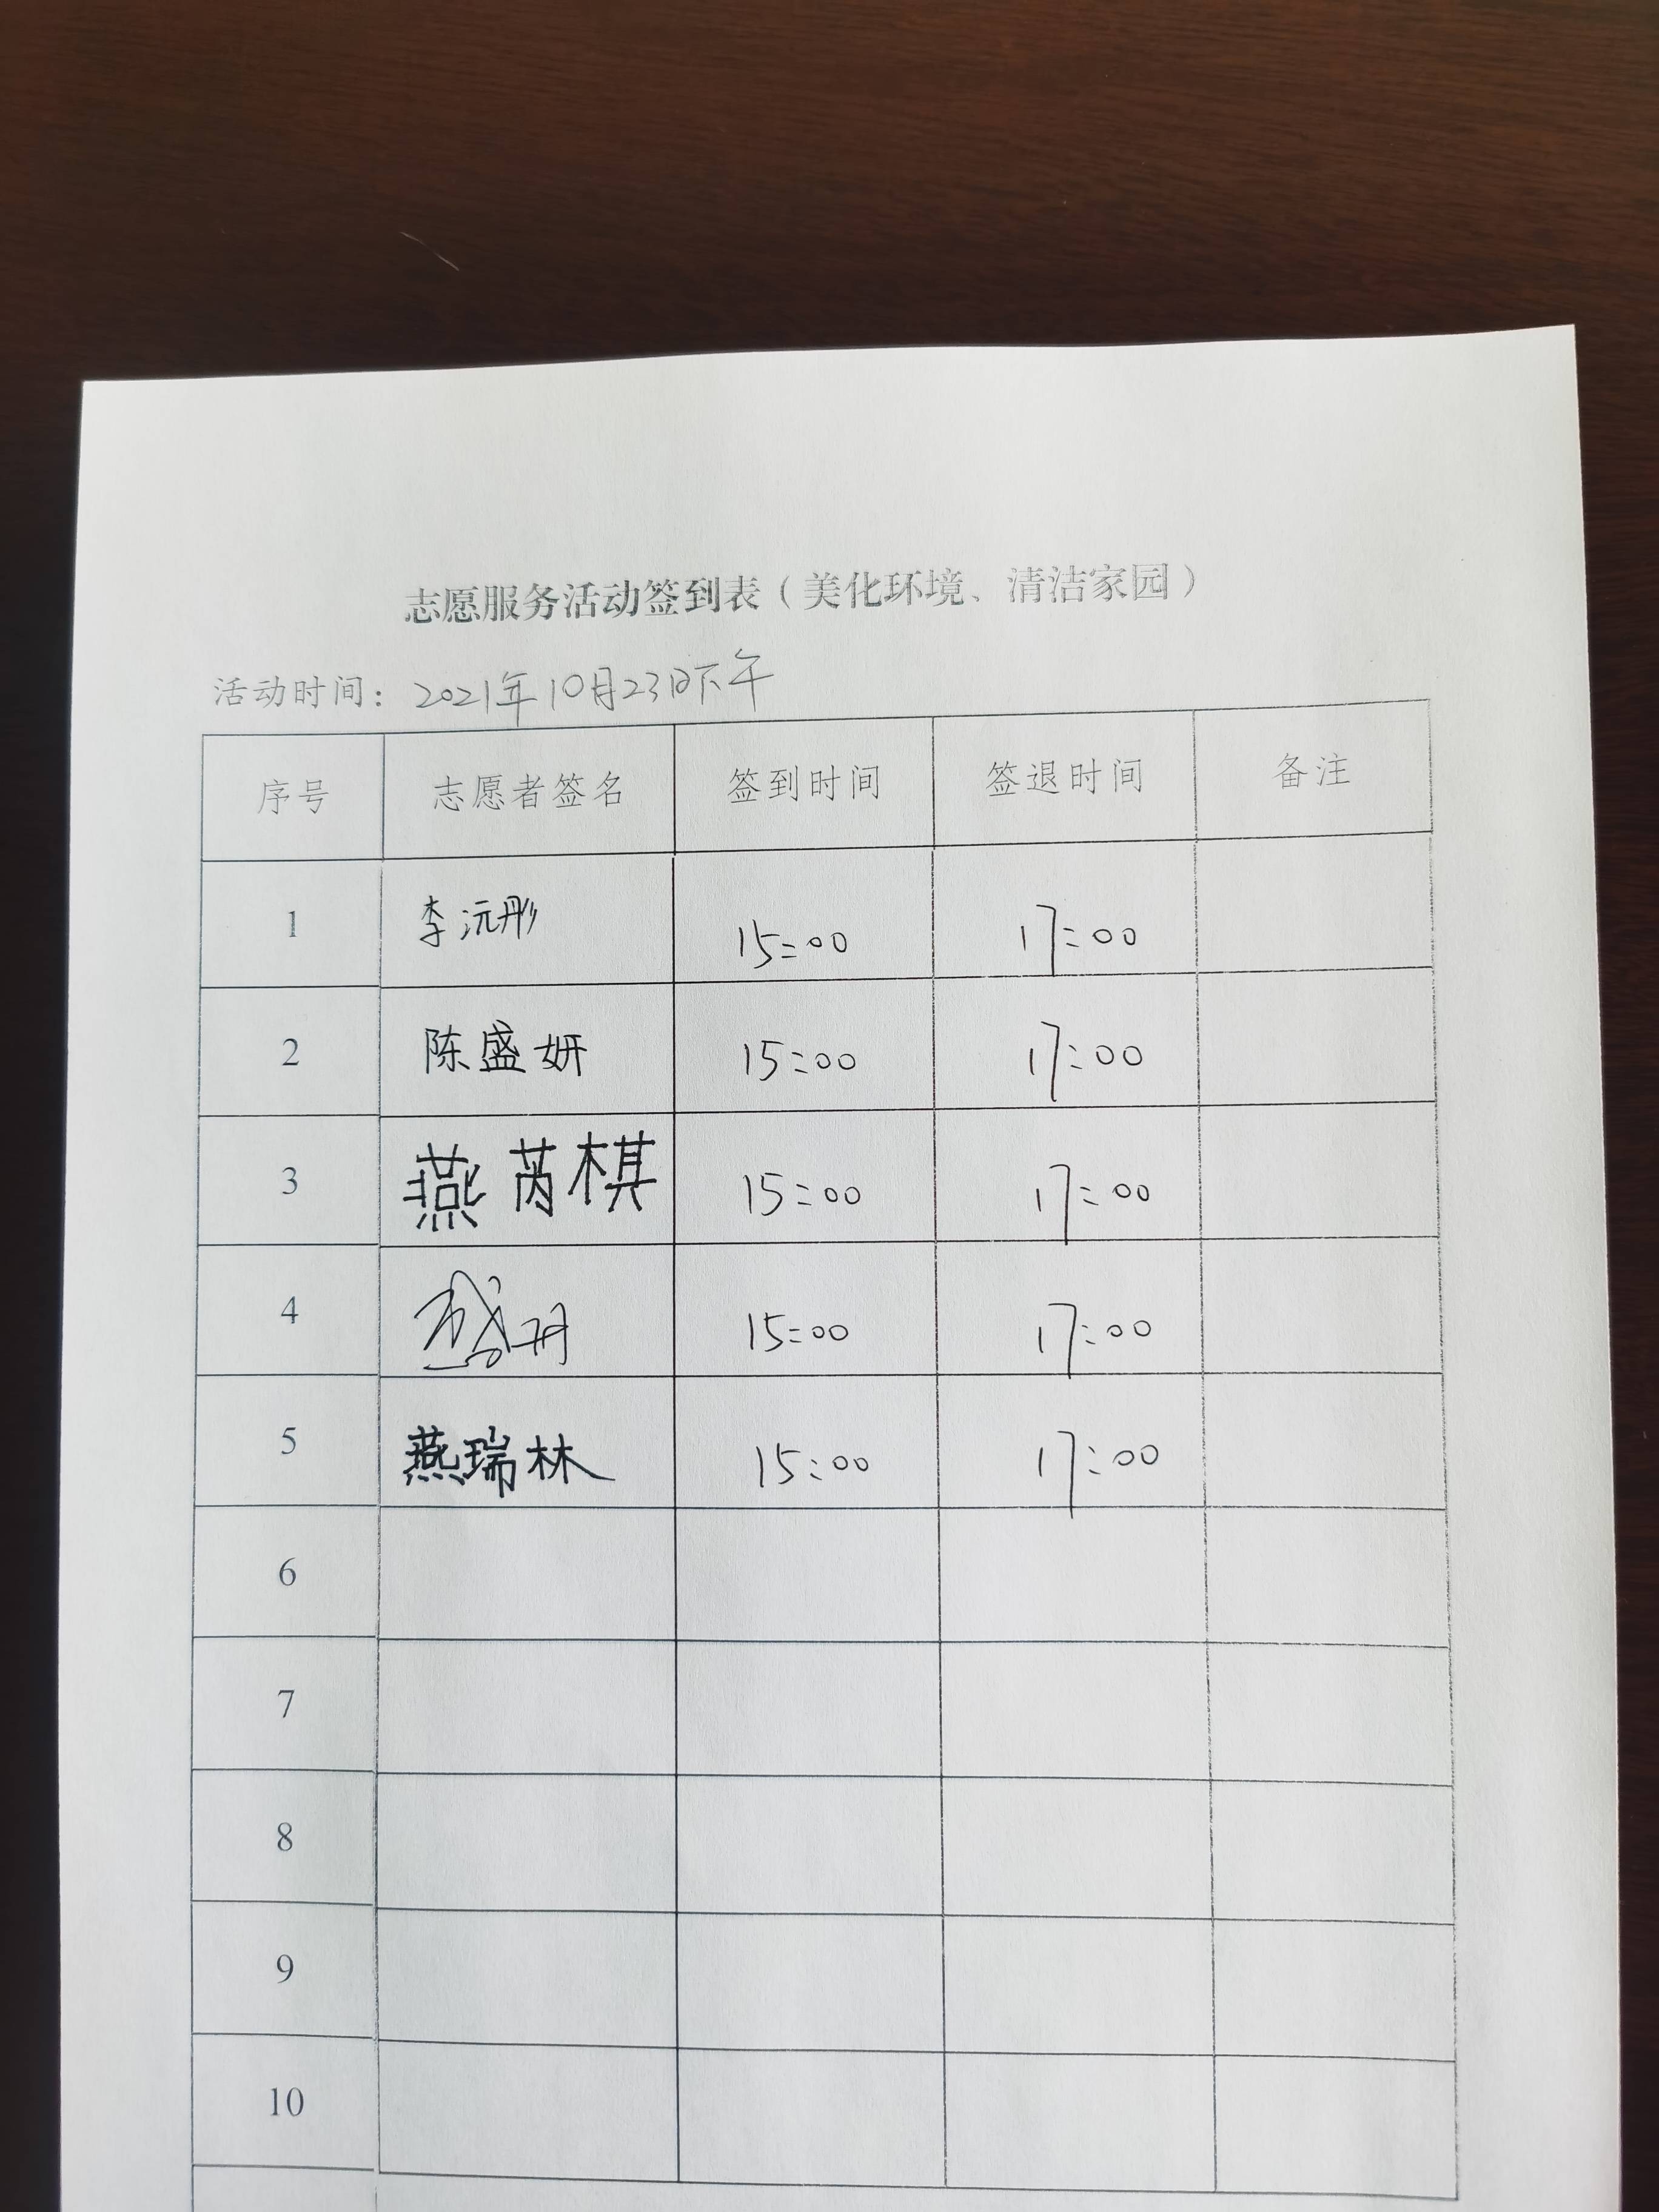 志愿服务活动签到表（美化环境、清洁家园）
活动时间：2021年10月23日下午
序号 志愿者签名 签到时间 签退时间 备注
1 李沅彤 15:00 17:00
2 陈盛妍 15:00 17:00
3 燕芮棋 15:00 17:00
4 15:00 17:00
5 燕瑞林 15:00 17:00
6
7
8
9
10